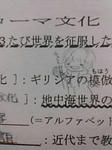 ーマ文化
3たび世界を征服した
]:ギリシアの模倣
もほう
化]:地中海世界の
(=アルファベット
]:近代まで教